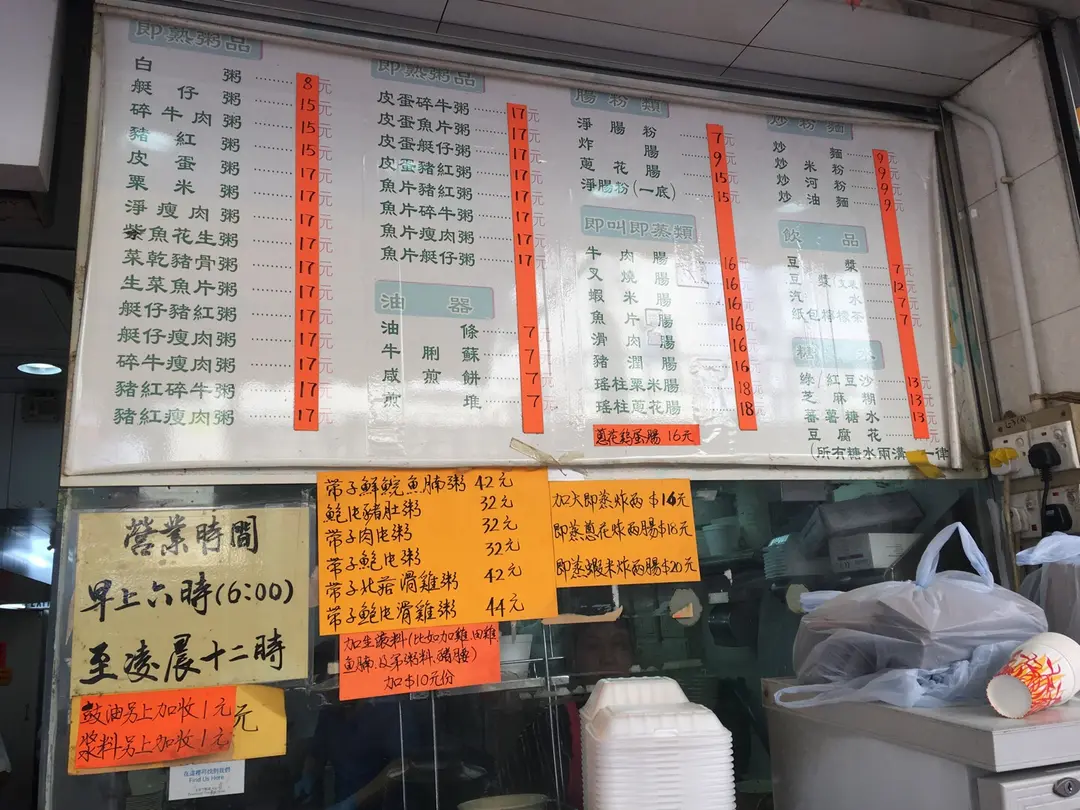 即熟粥品
白粥 8元
艇仔粥 15元
碎牛肉粥 15元
豬紅粥 15元
皮蛋粥 17元
粟米粥 17元
淨瘦肉粥 17元
柴魚花生粥 17元
菜乾豬骨粥 17元
生菜魚片粥 17元
艇仔豬紅粥 17元
艇仔瘦肉粥 17元
碎牛瘦肉粥 17元
豬紅碎牛粥 17元
豬紅瘦肉粥 17元
即熟粥品
皮蛋碎牛粥 17元
皮蛋魚片粥 17元
皮蛋艇仔粥 17元
皮蛋豬紅粥 17元
魚片豬紅粥 17元
魚片碎牛粥 17元
魚片瘦肉粥 17元
魚片艇仔粥 17元
油器
油條 7元
牛脷蘇 7元
咸煎餅 7元
煎堆 7元
腸粉類
淨腸粉 7元
炸腸 9元
蔥花腸 15元
淨腸粉(一底) 15元
即叫即蒸類
牛肉腸 16元
叉燒腸 16元
蝦米腸 16元
魚片腸 16元
滑肉腸 16元
豬潤腸 16元
瑤柱粟米腸 18元
瑤柱蔥花腸 18元
蔥花鷄蛋腸 16元
炒粉麵
炒麵 9元
炒米粉 9元
炒河粉 9元
炒油麵 9元
飲品
豆漿 7元
豆漿 12元
汽水 7元
紙包檸檬茶 7元
糖水
綠/紅豆沙 13元
芝麻糊 13元
蕃薯糖水 13元
豆腐花
(所有糖水兩溝 一律
營業時間
早上六時(6:00)
至凌晨十二時
豉油另上加收1元
漿料另上加收1元
元
在這裡可找到我們
Find Us Here
帶子鮮鯇魚腩粥 42元
鮑片豬肚粥 32元
帶子肉片粥 32元
帶子鮑片粥 32元
帶子北菇滑雞粥 42元
帶子鮑片滑雞粥 44元
加生滾料(比如加雞,田雞
魚腩,及不粥料,豬膶)
加$10元份
加大即蒸炸両$16元
即蒸蔥花炸両腸$18元
即蒸蝦米炸両腸$20元